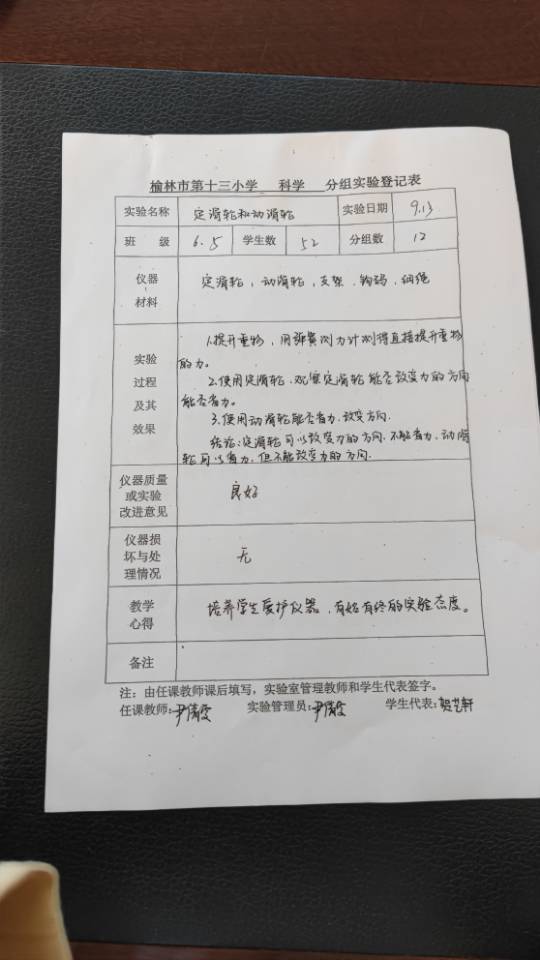 榆林市第十三小学 科学 分组实验登记表
实验名称 定滑轮和动滑轮 实验日期 9.13
班 级 6.5 学生数 52 分组数 12
仪器
材料
定滑轮，动滑轮，支架，钩码，细绳
实验
过程
及其
效果
1.提升重物，用弹簧测力计测得直接提升重物
的力。
2.使用定滑轮，观察定滑轮能否改变力的方向
能否省力。
3.使用动滑轮能否省力，改变方向.
结论:定滑轮可以改变力的方向.不能省力，动滑
轮可以省力，但不能改变力的方向.
仪器质量
或实验
改进意见
良好
仪器损
坏与处
理情况
无
教学
心得
培养学生爱护仪器，有始有终的实验态度。
备注
注：由任课教师课后填写，实验室管理教师和学生代表签字。
任课教师: 尹 实验管理员: 尹 学生代表: 轩